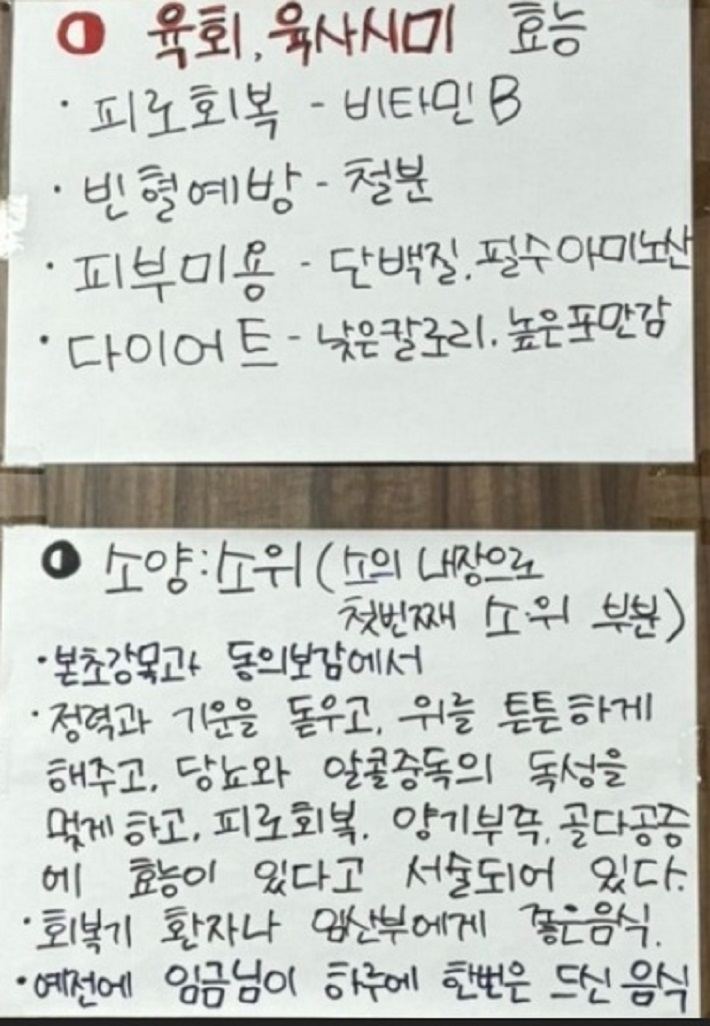 육회, 육사시미 효능
· 피로회복 - 비타민 B
· 빈혈예방 - 철분
· 피부미용 - 단백질, 필수아미노산
· 다이어트 - 낮은칼로리, 높은포만감
소양:소위(소의 내장으로
첫번째 소·위 부분)
· 본초강목과 동의보감에서
· 정력과 기운을 돋우고, 위를 튼튼하게
해주고, 당뇨와 알콜중독의 독성을
멎게 하고, 피로회복, 양기부족, 골다공증
에 효능이 있다고 서술되어 있다.
· 회복기 환자나 임산부에게 좋은음식.
· 예전에 임금님이 하루에 한번은 드신 음식